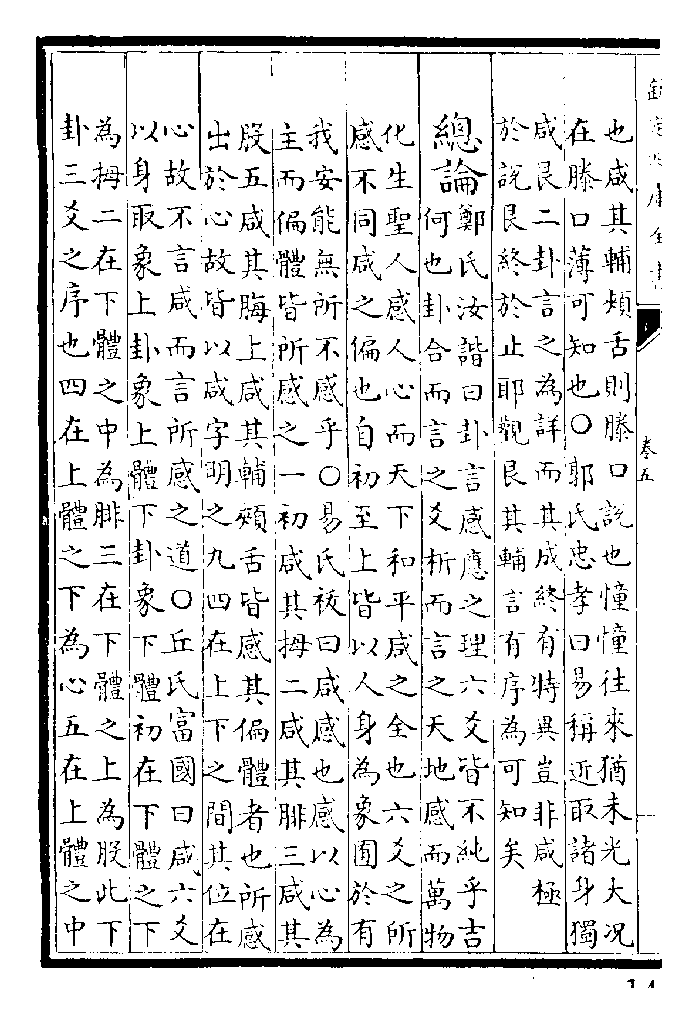 欽定四庫全書
卷五
也咸其輔頰舌則滕口說也憧憧往來猶未光大况
在滕口薄可知也○郭氏忠孝曰易稱近取諸身獨
咸艮二卦言之為詳而其成終有特異豈非咸極
於說艮終於止耶觀艮其輔言有序為可知矣
總論
鄭氏汝諧曰卦言感應之理六爻皆不純乎吉
何也卦合而言之爻析而言之天地感而萬物
化生聖人感人心而天下和平咸之全也六爻之所
感不同咸之偏也自初至上皆以人身為象囿於有
我安能無所不感乎○易氏祓曰咸感也感以心為
主而偏體皆所感之一初咸其拇二咸其腓三咸其
股五咸其脢上咸其輔頰舌皆感其偏體者也所感
出於心故皆以咸字明之九四在上下之間其位在
心故不言咸而言所感之道○丘氏富國曰咸六爻
以身取象上卦象上體下卦象下體初在下體之下
為拇二在下體之中為腓三在下體之上為股此下
卦三爻之序也四在上體之下為心五在上體之中